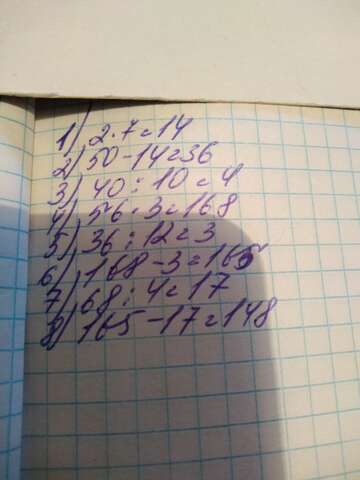 1) 2·7=14
2) 50-14=36
3) 40:10=4
4) 56·3=168
5) 36:12=3
6) 168-3=165
7) 68:4=17
8) 165-17=148